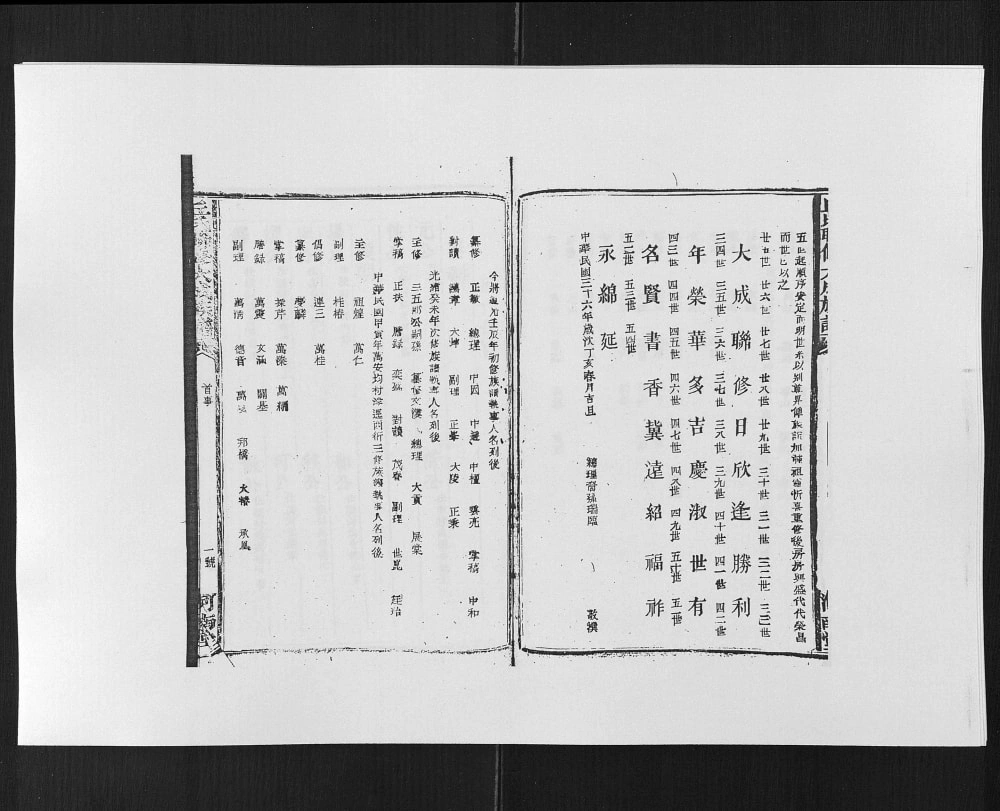 五世起順序安定而明世系以別尊卑俾族訢加韓祖宗忻喜重修後房房興盛代代榮昌
而世世以之
廿五世 廿六世 廿七世 廿八世 廿九世 三十世 三一世 三二世 三三世
大成聯修日欣逢勝利
三四世 三五世 三六世 三七世 三八世 三九世 四十世 四一世 四二世
年榮華多吉慶淑世有
四三世 四四世 四五世 四六世 四七世 四八世 四九世 五十世 五一世
名賢書香冀遠紹福祚
五二世 五三世 五四世
永綿延
中華民國三十六年歲次丁亥春月吉旦 總理裔孫瑞臨 敬撰
今將 壬辰年初修族譜執事人名列後
纂修 正敏 總理 中囩 中選 中檀 雲亮 掌稿 中和
對讀 鴻章 大坤 副理 正峯 大陵 正秉
光緒癸未年次修族譜執事人名列後
主修 三五郎公嗣孫 纂修文漢 總理 大賓 展棠
掌稿 正扶 謄錄 奕 對讀 茂春 副理 世昆 廷治
中華民國甲寅年萬安均村 四修三修族譜執事人名列後
主修 祖鰉 萬仁
副理 桂椿
倡修 連三 萬桂
纂修 夢麟
掌稿 採芹 萬濚 萬
謄錄 萬靈 友 開基
副理 萬 德音 萬 邦橋 大椿 承鳳
首事
一號
河南堂